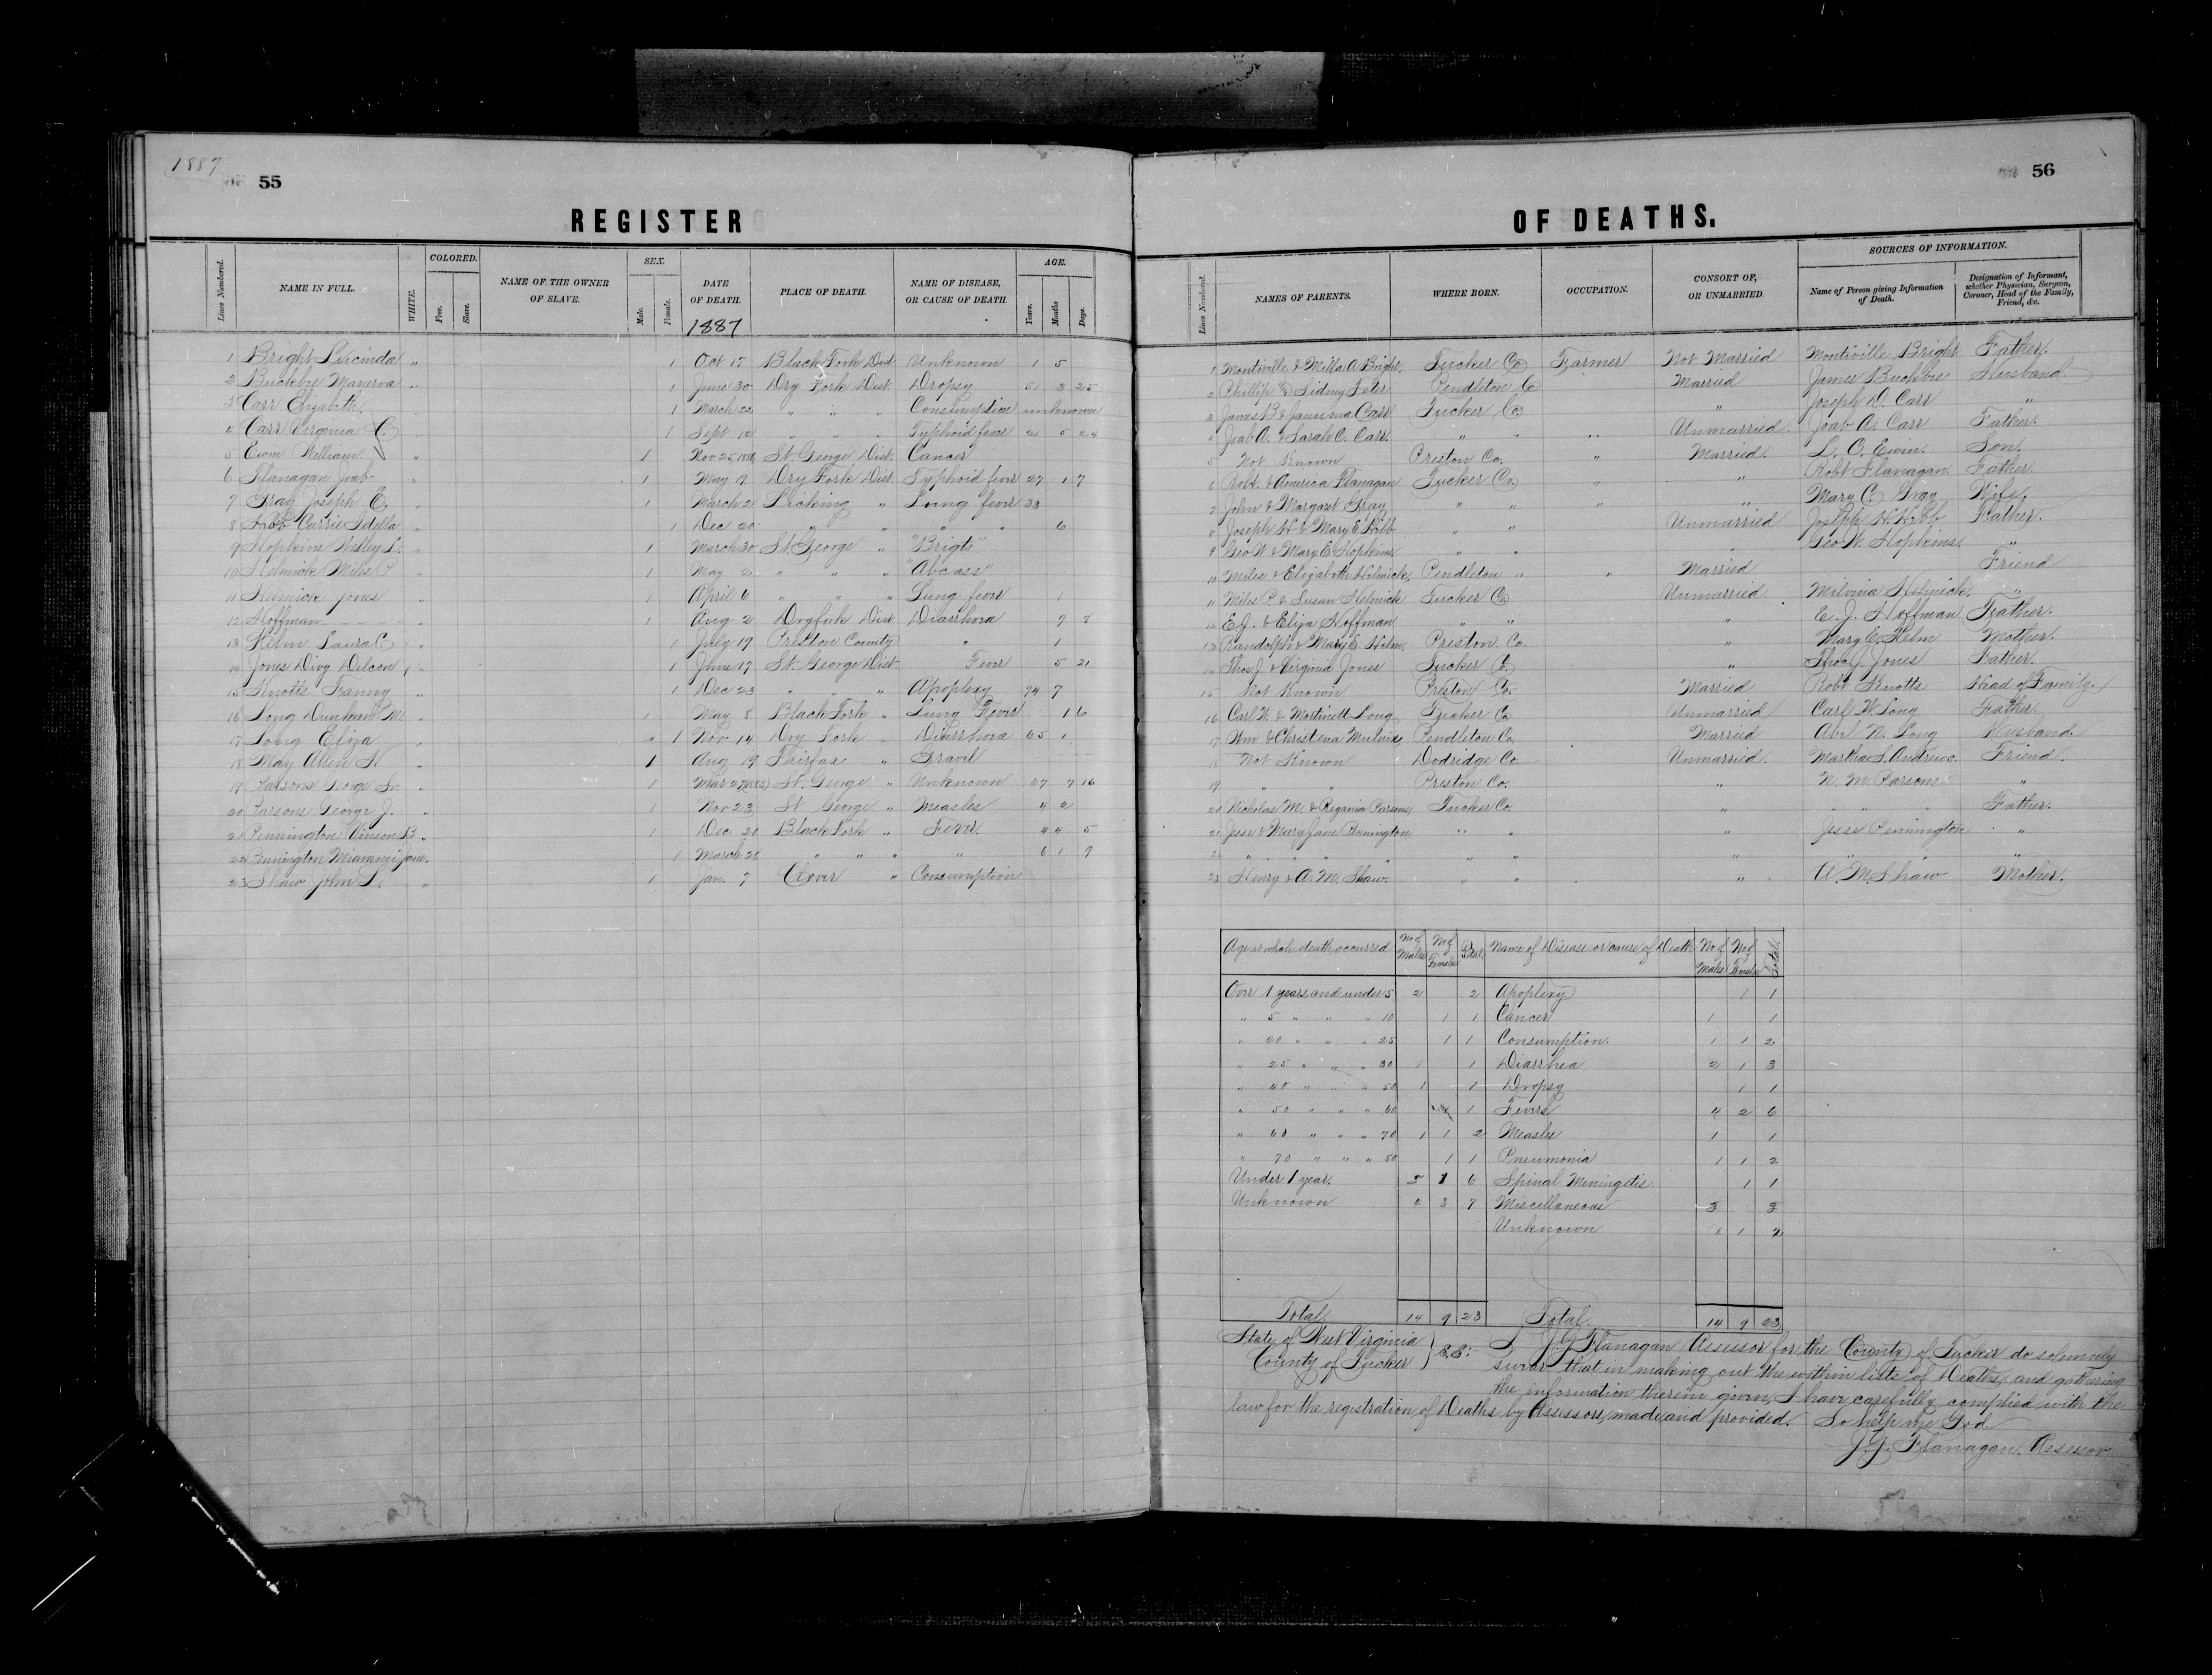 1887
55
REGISTER
Lines Numbered. NAME IN FULL. WHITE. COLORED. Free. Slave. NAME OF THE OWNER OF SLAVE. SEX. Male. Female. DATE OF DEATH. 1887 PLACE OF DEATH. NAME OF DISEASE, OR CAUSE OF DEATH. AGE. Years. Months Days.
1 Bright Lucinda " 1 Oct 15 Black Fork Dist Unknown 1 5
2 Buckbee Manerva " 1 June 30 Dry Fork Dist Dropsy 51 3 25
3 Carr Elizabeth 1 March 22 " " " Consumption unknown
4 Carr Virginia C. 1 Sept 10 " " " Typhoid fever 21 5 24
5 William " 1 Nov 25, 1886 St George Dist. Cancer
6 Flanagan Joab " 1 May 17 Dry Fork Dist. Typhoid fever 27 1 7
7 Gray Joseph E. " 1 March 21 Licking " Lung fever 33
8 Carrie Idella 1 Dec 20 " " " " 6
9 Hopkins Wesley L. " 1 March 30 St. George " "Brigts"
10 Helmick Miles P. " 1 May 2 " " " "Abcess"
11 Helmick Jones " 1 April 6 " " " Lung fever 1
12 Hoffman " 1 Aug 2 Dryfork Dist Diarrhoea 7 8
13 Helm Laura C. " 1 July 19 Preston County " 1
14 Jones Divy Delcon " 1 June 17 St. George Dist Fever 5 21
15 Knotts Fanny " 1 Dec 23 " " " Apoplexy 74 7
16 Long Dunkan M " 1 May 8 Black Fork " Lung Fever 1 6
17 Long Eliza " 1 Nov 14 Dry Fork " Diarrhoea 65 1
18 May Allen N " 1 Aug 19 Fairfax " Gravel
19 Parsons George Sr. " 1 Mar 27 (1885) St. George " Unknown 7 16
20 Parsons George J. " 1 Nov 23 St George " Measles 4 2
21 Pennington Vinson B " 1 Dec 20 Black Fork " Fever. 4 4 5
22 Pennington Jane " 1 March 28 " " " " 6 1 9
23 Shaw John L. " 1 Jan. 7 Clover " Consumption
56
OF DEATHS.
Lines Numbered. NAMES OF PARENTS. WHERE BORN. OCCUPATION. CONSORT OF, OR UNMARRIED SOURCES OF INFORMATION. Name of Person giving Information of Death. Designation of Informant, whether Physician, Surgeon, Coroner, Head of the Family, Friend, &c.
1 Montiville & Milla A Bright. Tucker Co Farmer Not Married Montiville Bright Father.
2 Phillip & Sidney Teter Pendleton Co Married James Buckbee Husband.
3 James B & Jamima Carr Tucker Co " Joseph D. Carr "
4 Joab A. & Sarah C. Carr. " " " Unmarried. Joab A. Carr Father.
5 Not Known Preston Co. " Married. L. O. Son.
6 Robt. & America Flanagan Tucker Co. " " Robt Flanagan. Father
7 John & Margaret Gray " " " " Mary C. Gray Wife.
8 Joseph H & Mary E " " Unmarried Joseph H. Father.
9 Geo W. & Mary E Hopkins " " " Geo W. Hopkins. "
10 Miles & Elizabeth Helmick. Pendleton " " Married Friend
11 Miles P. & Susan Helmick Tucker Co Unmarried Milvina Helmick. "
12 E.J. & Eliza Hoffman " " " E. J. Hoffman Father.
13 Randolph & Mary E. Helm. Preston Co. " Mary E. Helm Mother.
14 Thos J. & Virginia Jones Tucker C. " Thos J. Jones Father.
15 Not Known Preston Co. Married Robt Knotts Head of Family.
16 Carl W. & Long Tucker Co Unmarried Carl W. Long Father.
17 Wm & Christena Pendleton Co Married Abel N. Long Husband.
18 Not Known Dodridge Co Unmarried. Martha S. Andrews. Friend.
19 " " Preston Co. N. M. Parsons. "
20 Nicholas M. & Parsons Tucker Co. " " " " Father.
21 Jesse & Mary Jane Pennington " " " Jesse Pennington "
22 " " " " " " " " " " "
23 Henry & A. M. Shaw. " " " A. M. Shaw Mother.
Age at which death occurred No of Males No of Females Total. Name of Disease or cause of Death No of Males No of Females Total.
Over 1 years and under 5 2 2 Apoplexy 1 1
" 5 " " " 10 1 1 Cancer 1 1
" 20 " " " 25 1 1 Consumption. 1 1 2
" 25 " " " 30 1 1 Diarrhea 2 1 3
" 40 " " " 50 1 1 Dropsy 1 1
" 50 " " " 60 1 Fevers 4 2 6
" 60 " " " 70 1 1 2 Measles 1 1
" 70 " " " 80 1 1 Pneumonia 1 1 2
Under 1 year. 5 1 6 Spinal Meningetis 1 1
Unknown 4 3 7 Miscellaneous 3 3
Unknown 1 1 2
Total. 14 9 23 Total. 14 9 23
State of West Virginia
County of Tucker } S.S:-
I J. G. Flanagan Assessor for the County of Tucker do solemnly
swear that in making out the within lists of Deaths, and gathering
the information therein given, I have carefully complied with the
law for the registration of Deaths by Assessors, made and provided. So help me God
J. G. Flanagan. Assessor